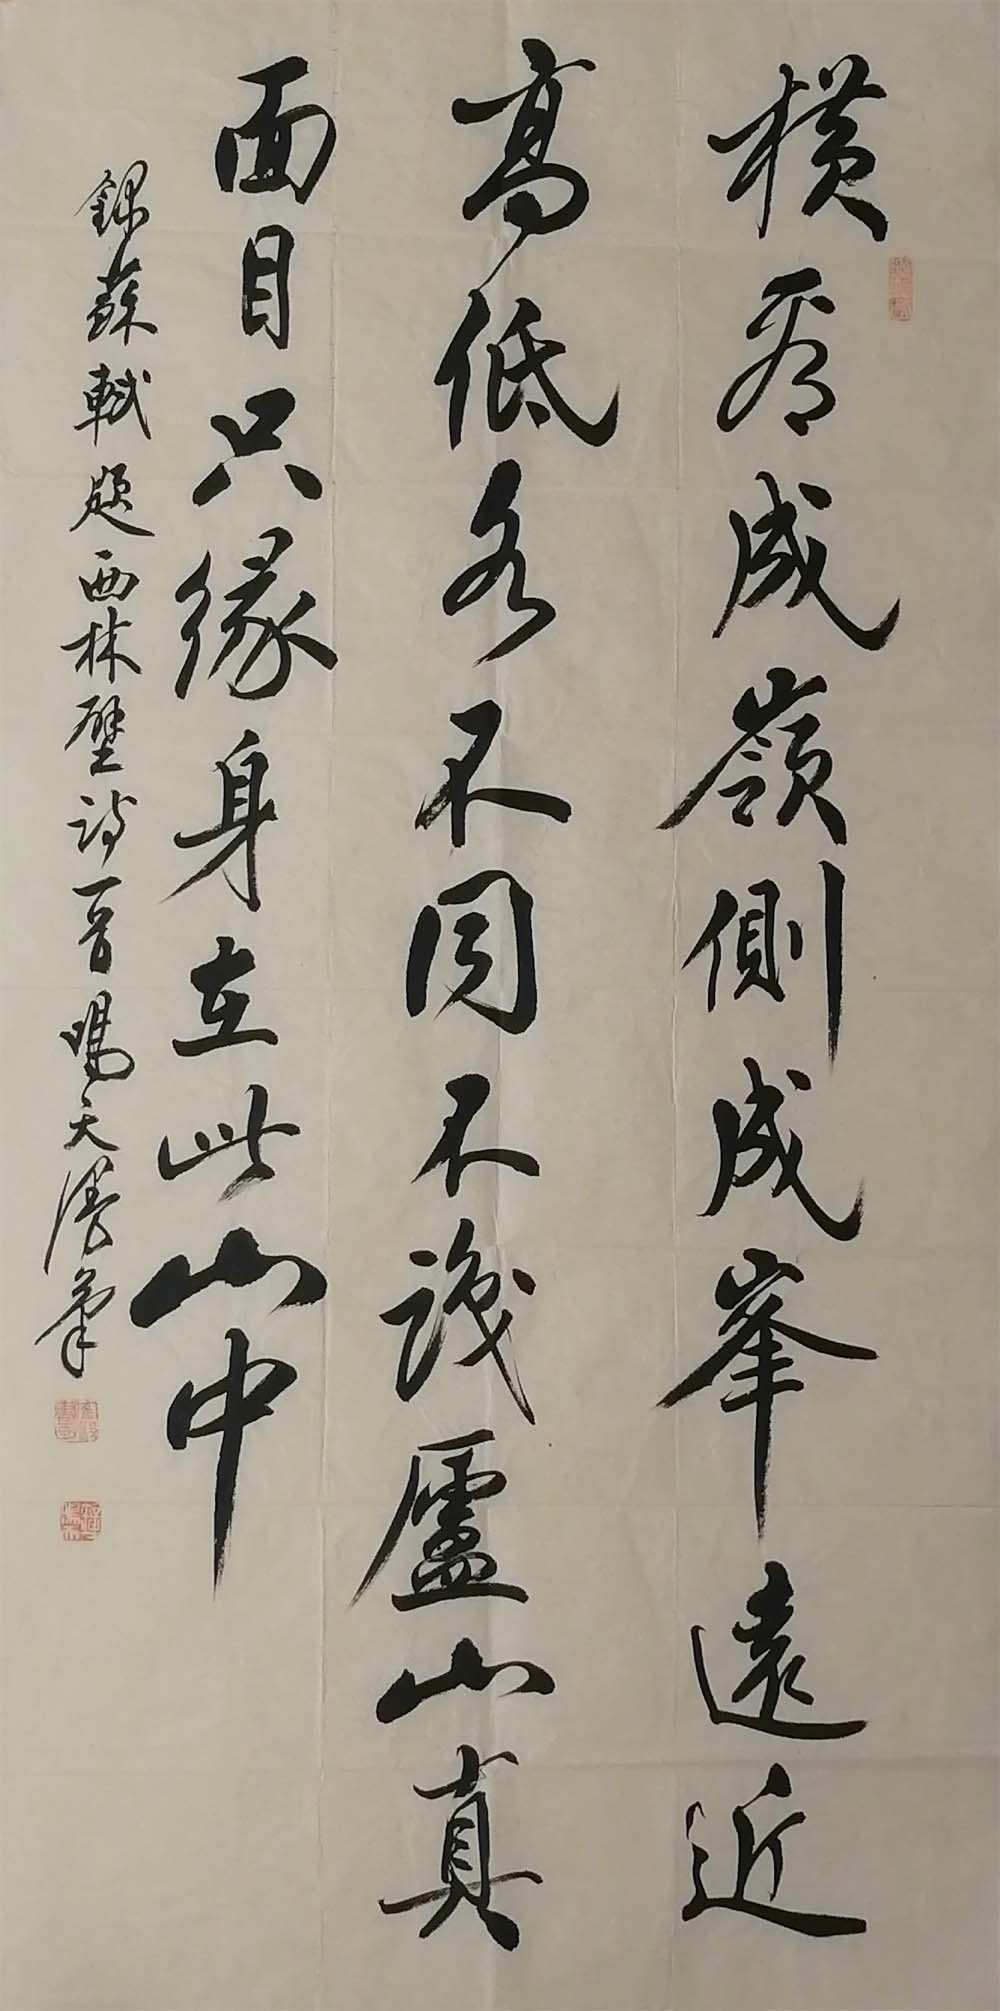 横看成嶺側成峯遠近
高低各不同不識廬山真
面目只緣身在此山中
錄蘇軾題西林壁詩一首 天澤筆